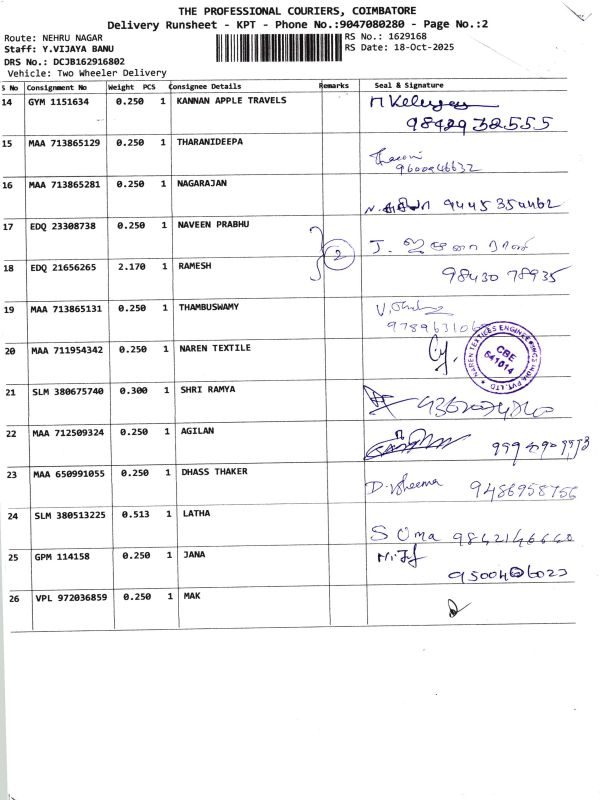 THE PROFESSIONAL COURIERS, COIMBATORE
Delivery Runsheet - KPT - Phone No.:9047080280 - Page No.:2
Route: NEHRU NAGAR
RS No.: 1629168
Staff: Y.VIJAYA BANU
RS Date: 18-Oct-2025
DRS No.: DCJB162916802
Vehicle: Two Wheeler Delivery
S No Consignment No Weight PCS Consignee Details Remarks Seal & Signature
14 GYM 1151634 0.250 1 KANNAN APPLE TRAVELS
15 MAA 713865129 0.250 1 THARANIDEEPA
16 MAA 713865281 0.250 1 NAGARAJAN 9445354462
17 EDQ 23308738 0.250 1 NAVEEN PRABHU
2
18 EDQ 21656265 2.170 1 RAMESH 98430 78935
19 MAA 713865131 0.250 1 THAMBUSWAMY
20 MAA 711954342 0.250 1 NAREN TEXTILE
CBE
641014
21 SLM 380675740 0.300 1 SHRI RAMYA
22 MAA 712509324 0.250 1 AGILAN
23 MAA 650991055 0.250 1 DHASS THAKER 9486958756
24 SLM 380513225 0.513 1 LATHA S Uma 9842146640
25 GPM 114158 0.250 1 JANA
26 VPL 972036859 0.250 1 MAK